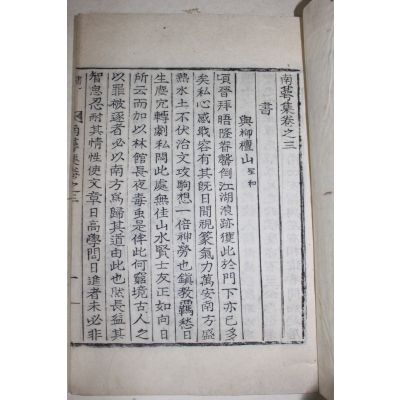 南蕚集卷之三
書
與柳檀山
頃晉拜晤隆眷罄倒江湖浪跡獲此於門下亦已多
矣私心感戢容有其旣日間視篆氣力萬安南方盛
熱水土不伏治文攻駒想一倍神勞也鎭教覊愁日
生塵冗轉劇私悶此處無佳山水賢士友正如向日
所云而加以林館長夜毒虫是伴此何窮境古人之
以罪被逐者必以南方爲歸其道由此也然長益其
智息忍耐其情性使文章日高學問日進者未必非
南蕚集卷之三